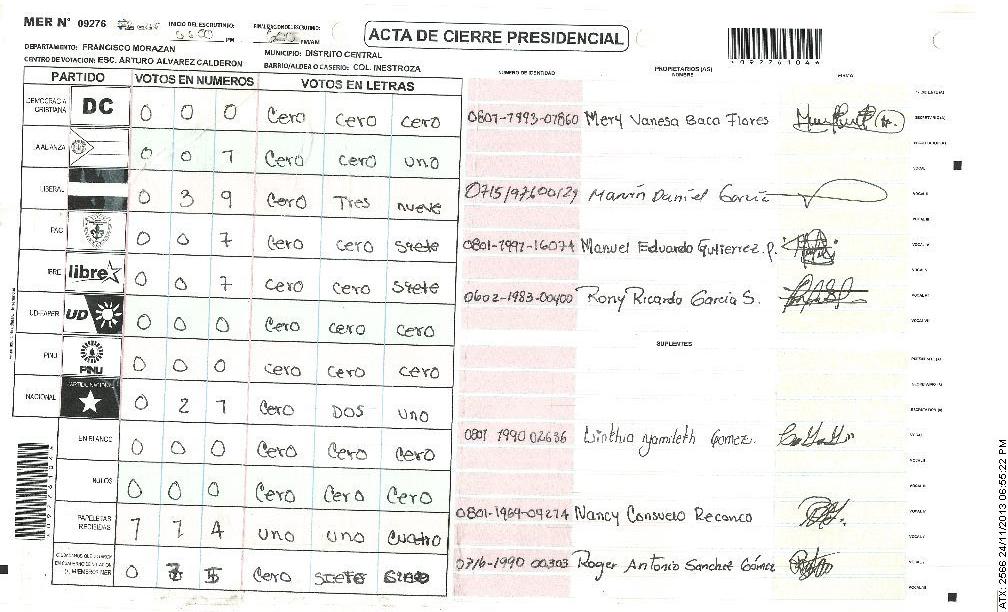 MER N° 09276 INICIO DEL ESCRUTINIO: PM FINALIZACION DEL ESCRUTINIO: PM/AM
ACTA DE CIERRE PRESIDENCIAL
DEPARTAMENTO: FRANCISCO MORAZAN MUNICIPIO: DISTRITO CENTRAL
CENTRO DE VOTACION: ESC. ARTURO ALVAREZ CALDERON BARRIO/ALDEA O CASERIO: COL. INESTROZA
PARTIDO VOTOS EN NUMEROS VOTOS EN LETRAS NUMERO DE IDENTIDAD PROPIETARIOS (AS) NOMBRE FIRMA
DEMOCRACIA CRISTIANA DC 0 0 0 Cero cero cero 0801-1993-07860 Mery Vanesa Baca Flores
ALIANZA 0 0 1 Cero cero uno
LIBERAL 0 3 9 Cero Tres nueve 0715197600129 Marvin Daniel Garcia
PAC 0 0 7 Cero cero siete 0801-1991-16074 Manuel Eduardo Gutierrez P.
LIBRE libre 0 0 7 cero cero siete 0602-1983-00400 Rony Ricardo Garcia S.
UD-FAPER UD 0 0 0 Cero cero cero
SUPLENTES
PINU PINU 0 0 0 cero cero cero
NACIONAL 0 2 1 Cero DOS uno
EN BLANCO 0 0 0 Cero Cero Cero 0801 1990 02636 Linthia yamileth Gomez.
NULOS 0 0 0 Cero Cero Cero
PAPELETAS RECIBIDAS 1 1 4 uno uno cuatro 0801-1969-09274 Nancy Consuelo Reconco
0 7 5 Cero siete 0716-1990 00303 Roger Antonio Sanchez Gómez
ATX: 2566 24/11/2013 06:55:22 PM